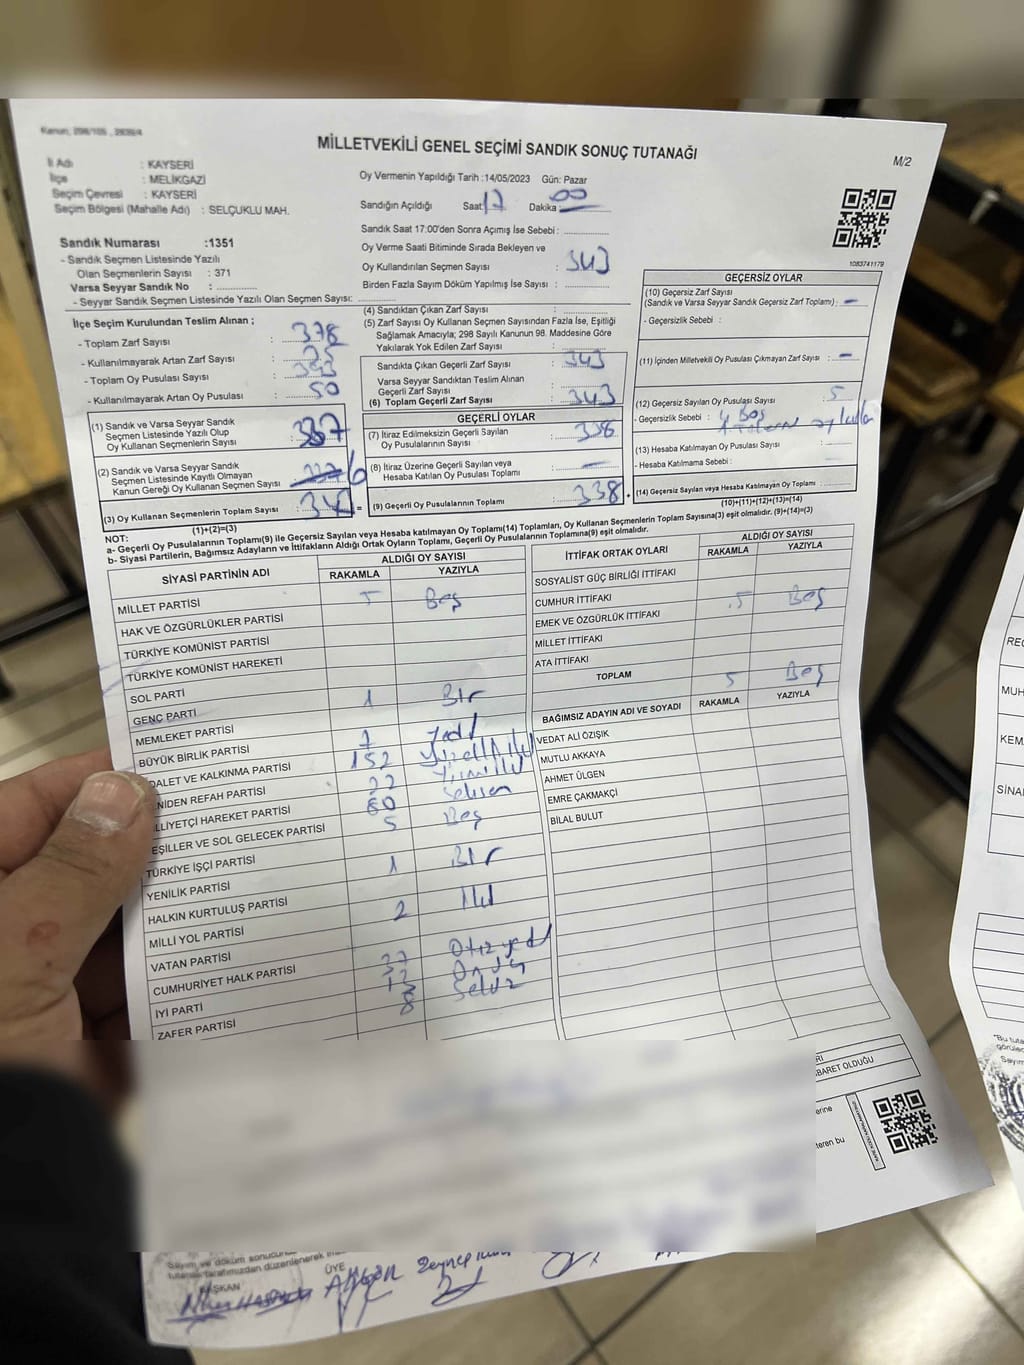 Kanun, 298/105 , 2839/4
MİLLETVEKİLİ GENEL SEÇİMİ SANDIK SONUÇ TUTANAĞI
M/2
İl Adı : KAYSERİ
İlçe : MELİKGAZİ
Seçim Çevresi : KAYSERİ
Seçim Bölgesi (Mahalle Adı) : SELÇUKLU MAH.
Oy Vermenin Yapıldığı Tarih :14/05/2023 Gün: Pazar
Sandığın Açıldığı Saat 17 Dakika : 00
Sandık Saat 17:00'den Sonra Açımış İse Sebebi :
Oy Verme Saati Bitiminde Sırada Bekleyen ve
Oy Kullandırılan Seçmen Sayısı : 343
Birden Fazla Sayım Döküm Yapılmış İse Sayısı :
1083741179
Sandık Numarası :1351
- Sandık Seçmen Listesinde Yazılı
Olan Seçmenlerin Sayısı : 371
Varsa Seyyar Sandık No :
- Seyyar Sandık Seçmen Listesinde Yazılı Olan Seçmen Sayısı:
İlçe Seçim Kurulundan Teslim Alınan ;
- Toplam Zarf Sayısı : 378
- Kullanılmayarak Artan Zarf Sayısı :
- Toplam Oy Pusulası Sayısı :
- Kullanılmayarak Artan Oy Pusulası : 50
(1) Sandık ve Varsa Seyyar Sandık
Seçmen Listesinde Yazılı Olup
Oy Kullanan Seçmenlerin Sayısı : 337
(2) Sandık ve Varsa Seyyar Sandık
Seçmen Listesinde Kayıtlı Olmayan
Kanun Gereği Oy Kullanan Seçmen Sayısı 6
(3) Oy Kullanan Seçmenlerin Toplam Sayısı :
(1)+(2)=(3)
(4) Sandıktan Çıkan Zarf Sayısı :
(5) Zarf Sayısı Oy Kullanan Seçmen Sayısından Fazla İse, Eşitliği
Sağlamak Amacıyla; 298 Sayılı Kanunun 98. Maddesine Göre
Yakılarak Yok Edilen Zarf Sayısı :
Sandıkta Çıkan Geçerli Zarf Sayısı : 343
Varsa Seyyar Sandıktan Teslim Alınan
Geçerli Zarf Sayısı :
(6) Toplam Geçerli Zarf Sayısı : 343
GEÇERLİ OYLAR
(7) İtiraz Edilmeksizin Geçerli Sayılan
Oy Pusulalarının Sayısı : 338
(8) İtiraz Üzerine Geçerli Sayılan veya
Hesaba Katılan Oy Pusulası Toplamı : —
(9) Geçerli Oy Pusulalarının Toplamı : 338
GEÇERSİZ OYLAR
(10) Geçersiz Zarf Sayısı
(Sandık ve Varsa Seyyar Sandık Geçersiz Zarf Toplamı) : —
- Geçersizlik Sebebi :
(11) İçinden Milletvekili Oy Pusulası Çıkmayan Zarf Sayısı : —
(12) Geçersiz Sayılan Oy Pusulası Sayısı : 5
- Geçersizlik Sebebi : 4 Boş
(13) Hesaba Katılmayan Oy Pusulası Sayısı :
- Hesaba Katılmama Sebebi :
(14) Geçersiz Sayılan veya Hesaba Katılmayan Oy Toplamı :
(10)+(11)+(12)+(13)=(14)
NOT:
a- Geçerli Oy Pusulalarının Toplamı(9) ile Geçersiz Sayılan veya Hesaba katılmayan Oy Toplamı(14) Toplamları, Oy Kullanan Seçmenlerin Toplam Sayısına(3) eşit olmalıdır. (9)+(14)=(3)
b- Siyasi Partilerin, Bağımsız Adayların ve İttifakların Aldığı Ortak Oyların Toplamı, Geçerli Oy Pusulalarının Toplamına(9) eşit olmalıdır.
SİYASİ PARTİNİN ADI ALDIĞI OY SAYISI
RAKAMLA YAZIYLA
MİLLET PARTİSİ 5 Beş
HAK VE ÖZGÜRLÜKLER PARTİSİ
TÜRKİYE KOMÜNİST PARTİSİ
TÜRKİYE KOMÜNİST HAREKETİ
SOL PARTİ
GENÇ PARTİ 1 Bir
MEMLEKET PARTİSİ
BÜYÜK BİRLİK PARTİSİ 7 yedi
DALET VE KALKINMA PARTİSİ 152
NİDEN REFAH PARTİSİ 22
LLİYETÇİ HAREKET PARTİSİ 80 Seksen
EŞİLLER VE SOL GELECEK PARTİSİ 5 Beş
TÜRKİYE İŞÇİ PARTİSİ
YENİLİK PARTİSİ 1 Bir
HALKIN KURTULUŞ PARTİSİ
MİLLİ YOL PARTİSİ 2 İki
VATAN PARTİSİ
CUMHURİYET HALK PARTİSİ 37 Otuz yedi
İYİ PARTİ 13
ZAFER PARTİSİ 8 Sekiz
İTTİFAK ORTAK OYLARI ALDIĞI OY SAYISI
RAKAMLA YAZIYLA
SOSYALİST GÜÇ BİRLİĞİ İTTİFAKI
CUMHUR İTTİFAKI 5 Beş
EMEK VE ÖZGÜRLÜK İTTİFAKI
MİLLET İTTİFAKI
ATA İTTİFAKI
TOPLAM 5 Beş
BAĞIMSIZ ADAYIN ADI VE SOYADI RAKAMLA YAZIYLA
VEDAT ALİ ÖZIŞIK
MUTLU AKKAYA
AHMET ÜLGEN
EMRE ÇAKMAKÇI
BİLAL BULUT
BARET OLDUĞU
erine
teren bu
Sayım ve döküm sonucu
tutanak tarafımızdan düzenlenerek
BAŞKAN ÜYE
MUH
KEM
SİNA